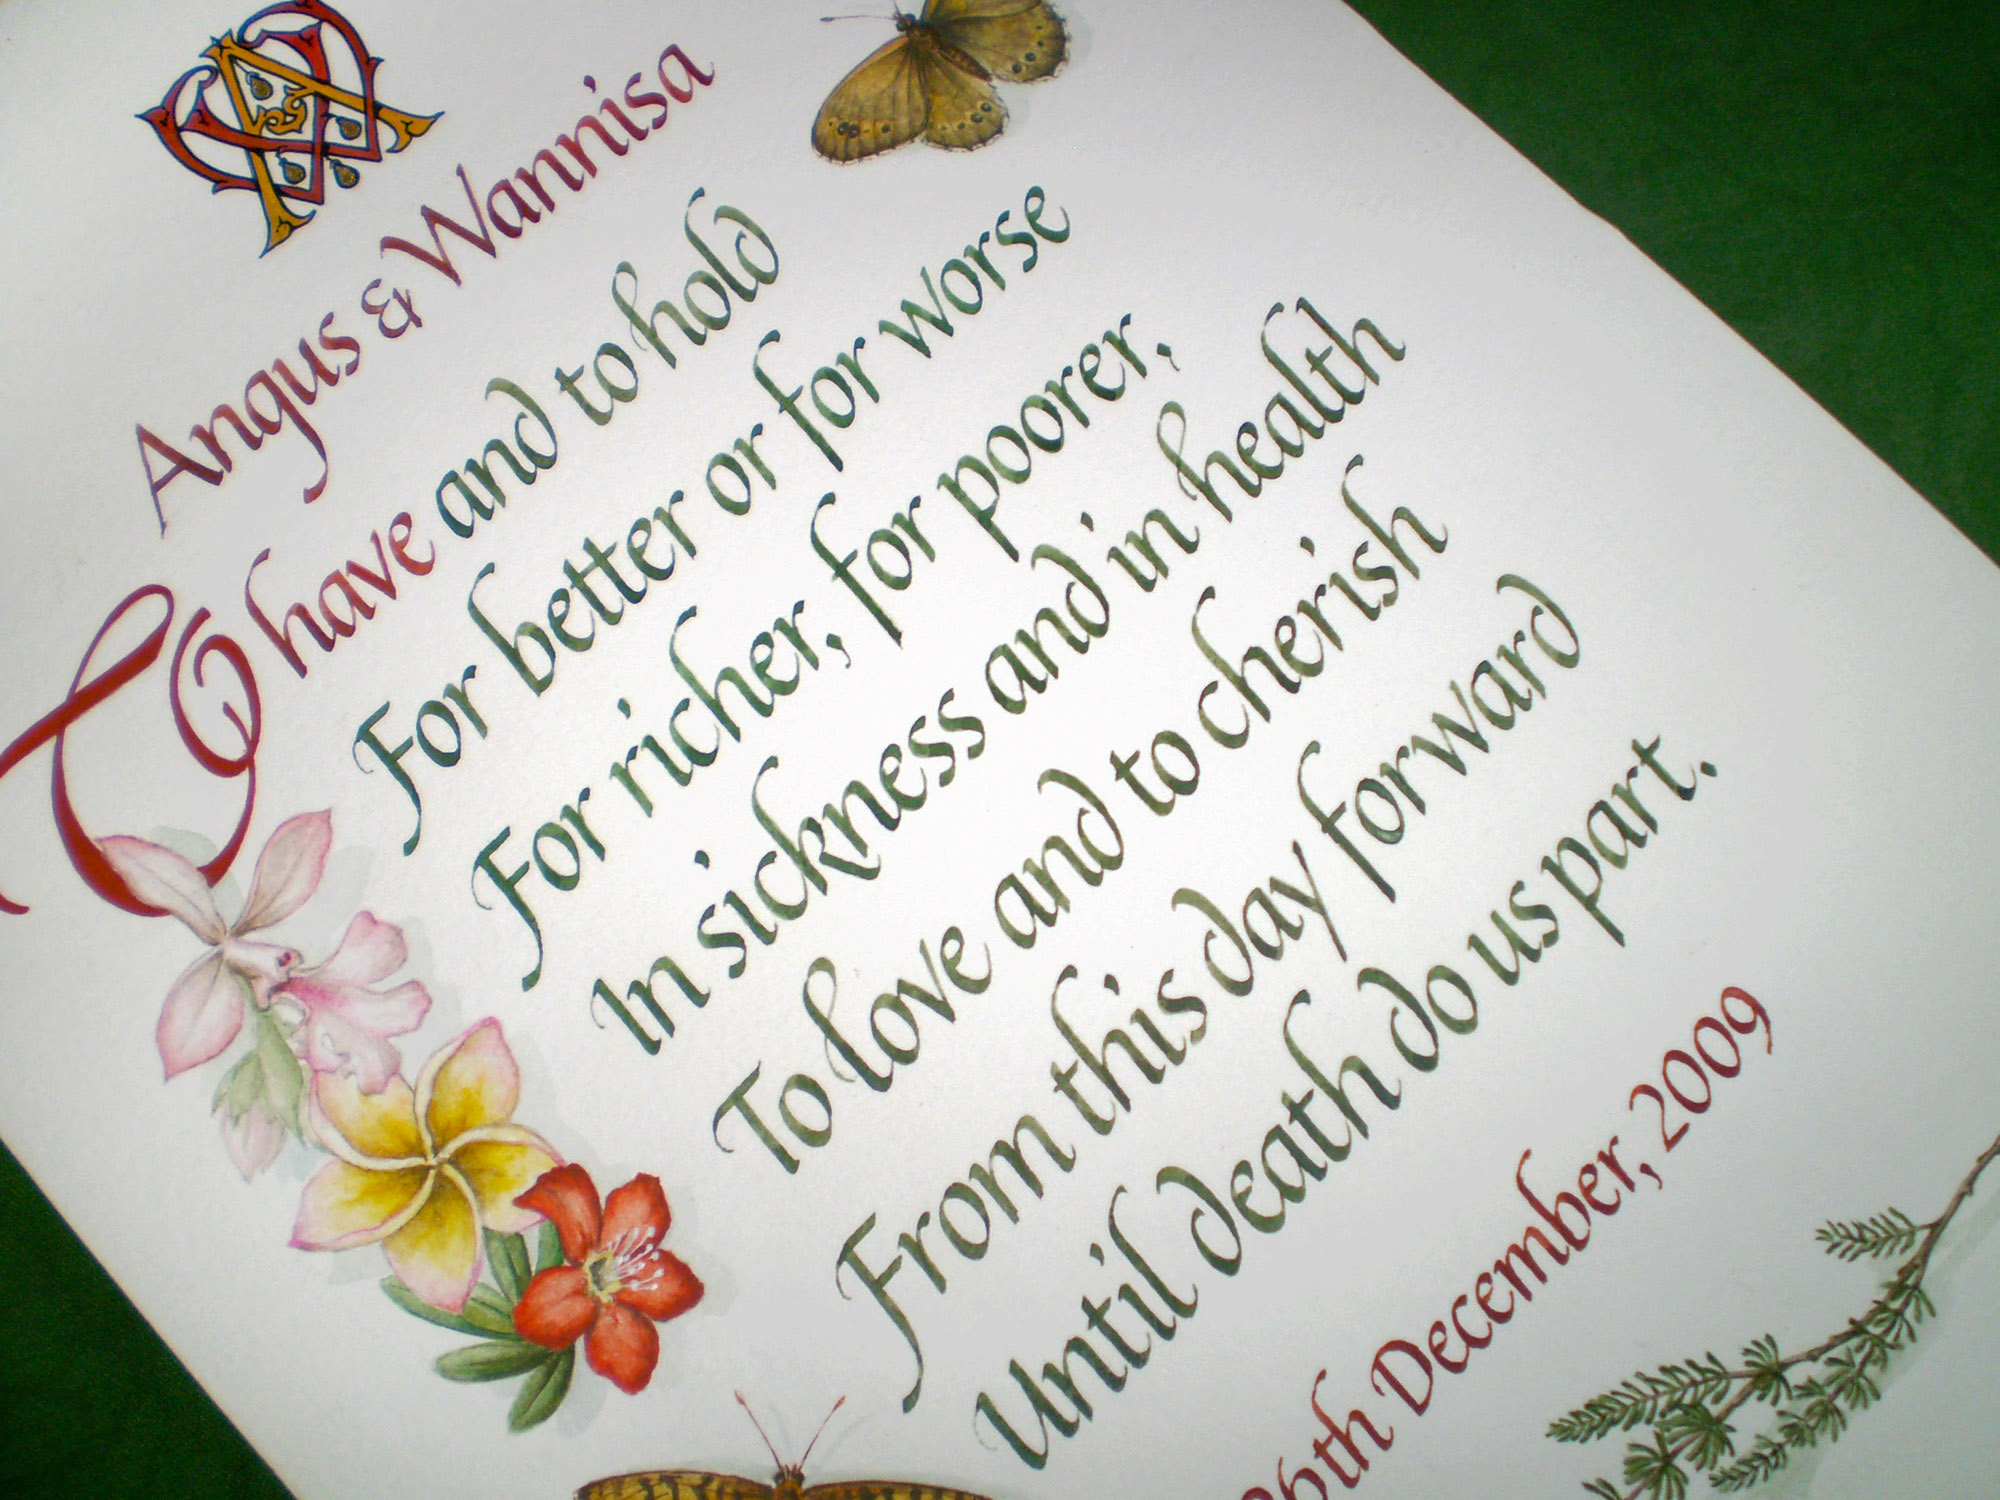 Angus & Wannisa
To have and to hold
For better or for worse
For richer, for poorer,
In sickness and in health
To love and to cherish
From this day forward
Until death do us part.
26th December, 2009